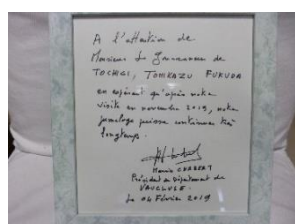 A l'attention de
Monsieur Le Gouverneur de
TOCHIGI, TOMIKAZU FUKUDA
en espérant qu'après notre
visite en novembre 2019, notre
jumelage puisse continuer très
longtemps.
Maurice CHABERT
Président du Département de
VAUCLUSE.
Le 04 Février 2019